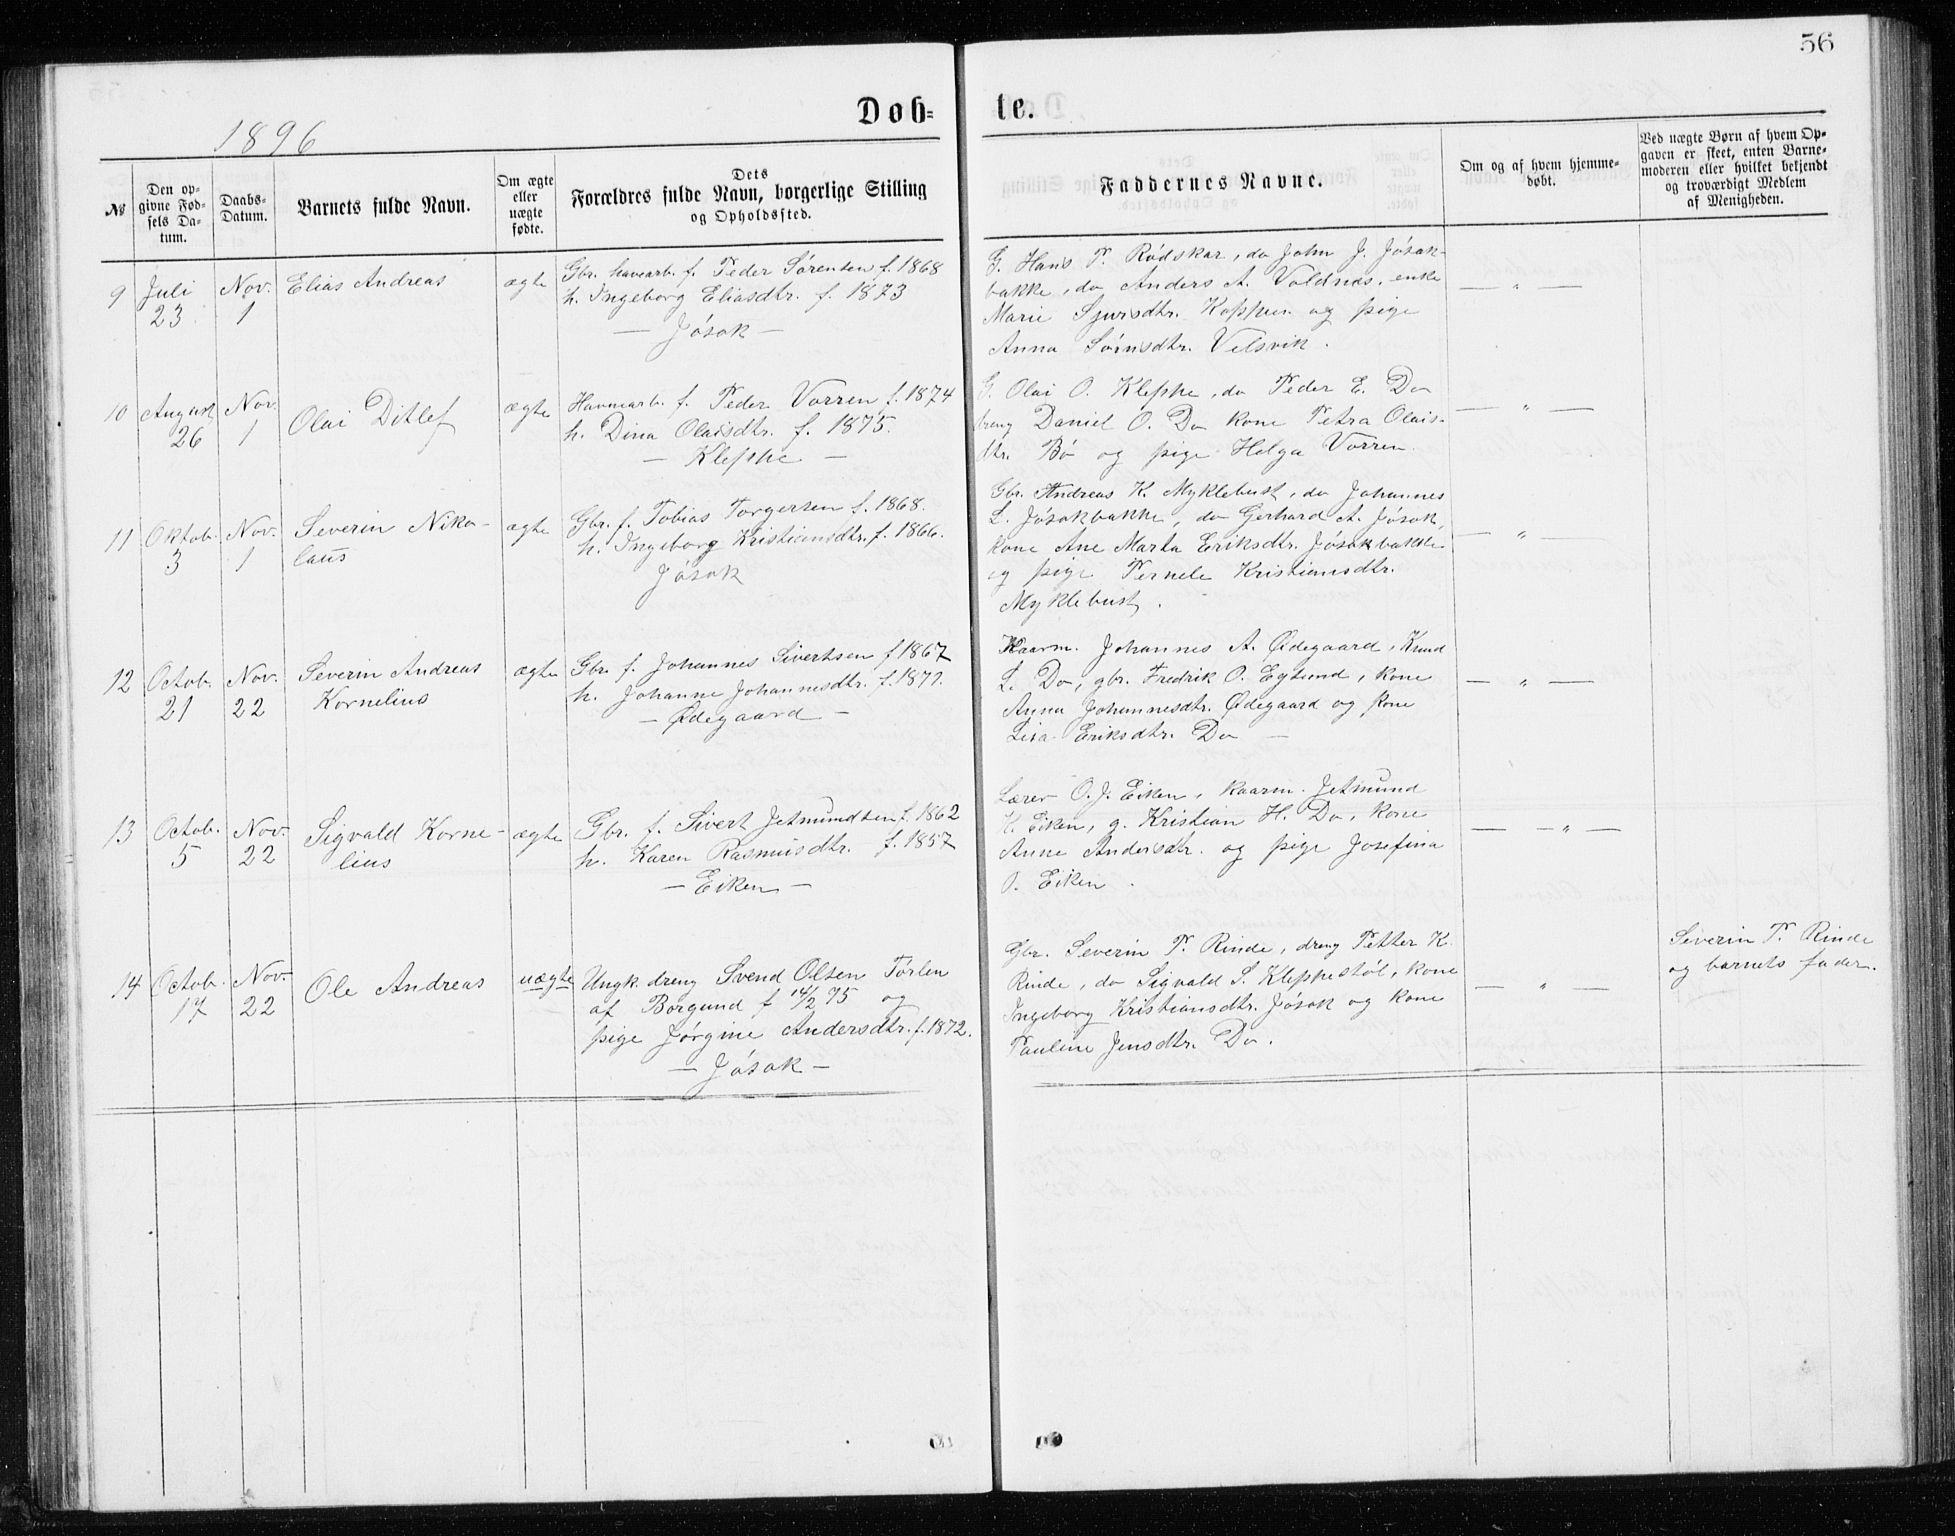 56
Døb-
te.
1896
№
Den op-
givne Fød-
sels Da-
tum.
Daabs-
Datum.
Barnets fulde Navn.
Om ægte
eller
uægte
fødte.
Dets
Forældres fulde Navn, borgerlige Stilling
og Opholdssted.
Faddernes Navne.
Om og af hvem hjemme-
døbt.
Ved uægte Børn af hvem Op-
gaven er skeet, enten Barne-
moderen eller hvilket bekjendt
og troværdigt Medlem
af Menigheden.
9
Juli
23
Nov.
1
Elias Andreas
ægte
Gbr. havearb. f. Peder Sørensen f. 1868
h. Ingeborg Eliasdtr. f. 1873
— Jøsok —
G. Hans P. Rødskar, do John J. Jøsok-
bakke, do Anders A. Voldnes, enke
Marie Sjursdtr. Koppen og pige
Anna Sørnsdtr. Velsvik.
— " —
10
August
26
Nov.
1
Olai Ditlef
ægte
Havnearb. f. Peder Vorren f. 1874
h. Dina Olaisdtr. f. 1875.
— Kleppe —
G. Olai O. Kleppe, do Peder E. Do
dreng Daniel O. Do kone Petra Olais-
dtr. Bø og pige Helga Vorren
— " —
11
Oktob.
3
Nov.
1
Severin Niko-
laus
ægte
Gbr. f. Tobias Torgersen f. 1868.
h. Ingeborg Kristiansdtr. f. 1866.
Jøsok
Gbr. Andreas K. Myklebust, do Johannes
L. Jøsokbakke, do Gerhard A. Jøsok,
kone Ane Marta Eriksdtr. Jøsokbakke
og pige Pernele Kristiansdtr.
Myklebust.
— " —
12
Octob.
21
Nov.
22
Severin Andreas
Kornelius
ægte
Gbr. f. Johannes Sivertsen f 1867
h. Johanne Johannesdtr. f. 1871.
— Ødegaard —
Kaarm. Johannes A. Ødegaard, Knud
L. Do, gbr. Fredrik O. Egsund, kone
Anna Johannesdtr. Ødegaard og kone
Lisa Eriksdtr. Do —
— " —
13
Octob.
5
Nov.
22
Sigvald Korne-
lius
ægte
Gbr. f. Sivert Jetmundsen f. 1862
h. Karen Rasmusdtr. f. 1857
— Eiken —
Lærer O. J. Eiken, kaarm. Jetmund
K. Eiken, g. Kristian H. Do, kone
Anne Andersdtr. og pige Josefina
O. Eiken.
— " —
14
Octob.
17
Nov.
22
Ole Andreas
uægte
Ungk. dreng Svend Olsen Tørlen
af Borgund f 14/2 75 og
pige Jørgine Andersdtr. f. 1872.
— Jøsok —
Gbr. Severin P. Rinde, dreng Petter K.
Rinde, do Sigvald S. Kleppestøl, kone
Ingeborg Kristiansdtr. Jøsok og kone
Pauline Jensdtr. Do.
— " —
Severin P. Rinde
og barnets fader.